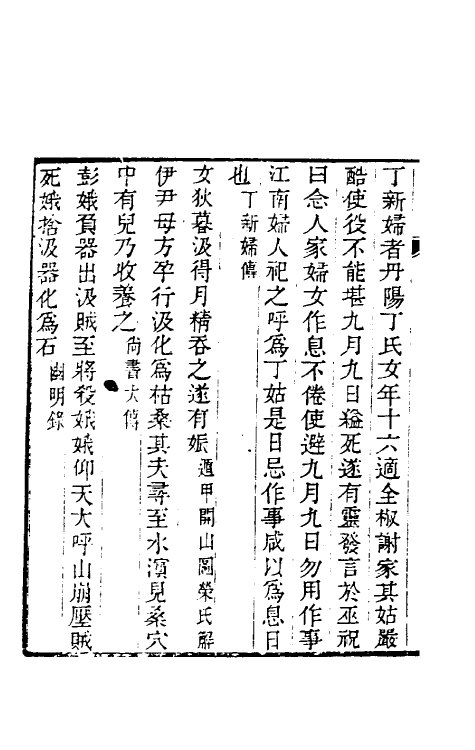 丁新婦者丹陽丁氏女年十六適全椒謝家其姑嚴
酷使役不能堪九月九日縊死遂有靈發言於巫祝
曰念人家婦女作息不倦使避九月九日勿用作事
江南婦人祀之呼爲丁姑是日忌作事咸以爲息日
也丁新婦傳
女狄暮汲得月精吞之遂有娠遁甲開山圖榮氏解
伊尹母方孕行汲化爲枯桑其夫尋至水濵見桑穴
中有兒乃收養之尚書大傳
彭娥負器出汲賊至將殺娥娥仰天大呼山崩壓賊
死娥捨汲器化爲石幽明錄